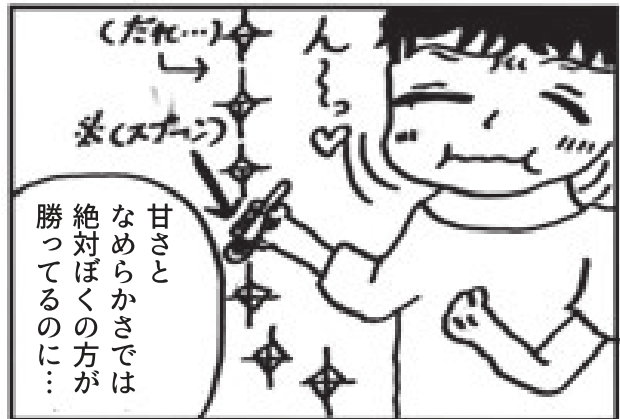 ん〜っ♡
(だれ…)
※(スプーン)
甘さと
なめらかさでは
絶対ぼくの方が
勝ってるのに…